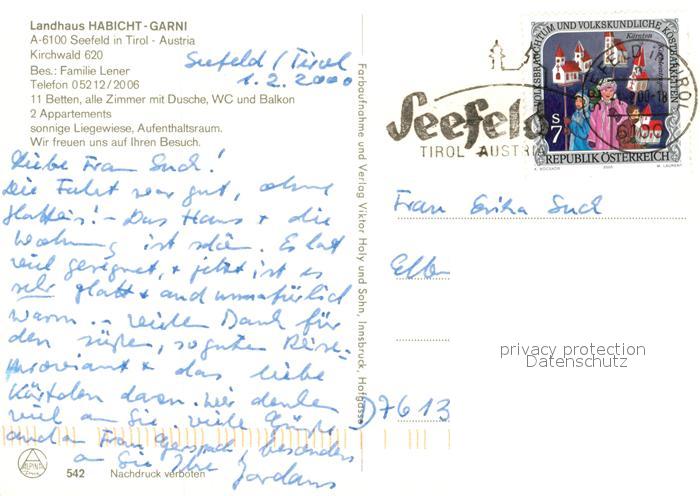 Landhaus HABICHT-GARNI
A-6100 Seefeld in Tirol - Austria
Kirchwald 620
Bes.: Familie Lener
Telefon 05212/2006
11 Betten, alle Zimmer mit Dusche, WC und Balkon
2 Appartements
sonnige Liegewiese, Aufenthaltsraum.
Wir freuen uns auf Ihren Besuch.
Seefeld / Tirol
1.2.2000
Liebe Frau Such!
Die Fahrt war gut, ohne
Glatteis! - Das Haus + die
Wohnung ist schön. Es hat
viel geregnet, + jetzt ist es
sehr glatt + und unnatürlich
warm. - Vielen Dank für
den süßen, so guten Reise-
proviant + das liebe
Kärtchen dazu. Wir denken
viel an Sie. Viele Grüße
an Frau besonders
an Sie Ihre Jordans
542 Nachdruck verboten
ALPINA
Farbaufnahme und Verlag Viktor Holy und Sohn, Innsbruck, Hofgasse
Seefeld
TIROL AUSTRIA
VOLKSBRAUCHTUM UND VOLKSKUNDLICHE KOSTBARKEITEN
Kärnten
S 7
REPUBLIK ÖSTERREICH
2000
SEEFELD IN TIROL
6100
Frau Erika Such
D7613
privacy protection
Datenschutz